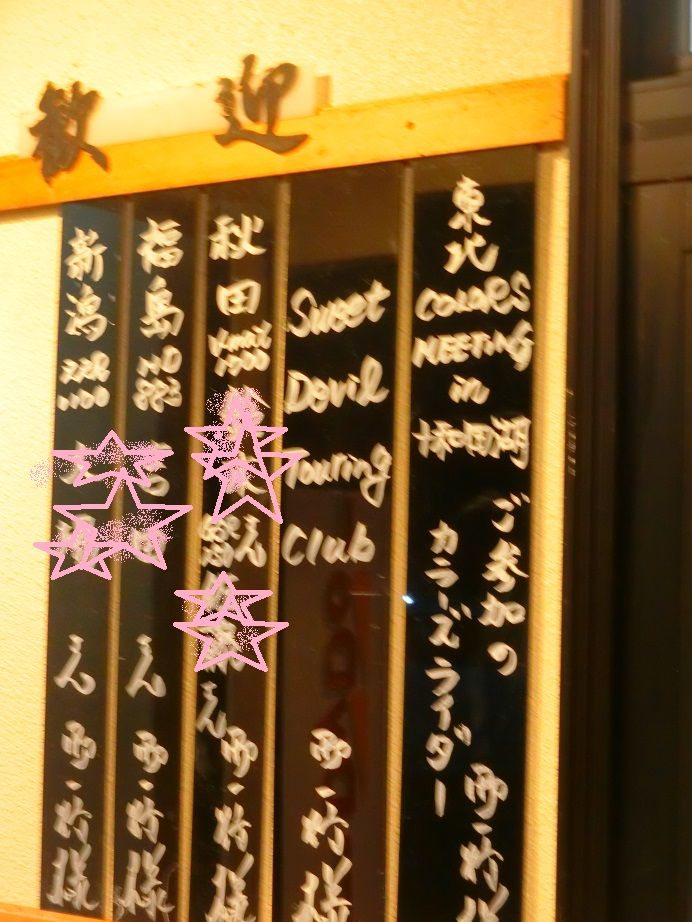 歓迎
東北
COLORS
MEETING
in
十和田湖
ご参加の
カラーズライダー
御一行様
Sweet
Devil
Touring
Club
御一行様
秋田
V-max
1200
さん
さん
御一行様
福島
さん
御一行様
新潟
ZZR
1100
さん
御一行様